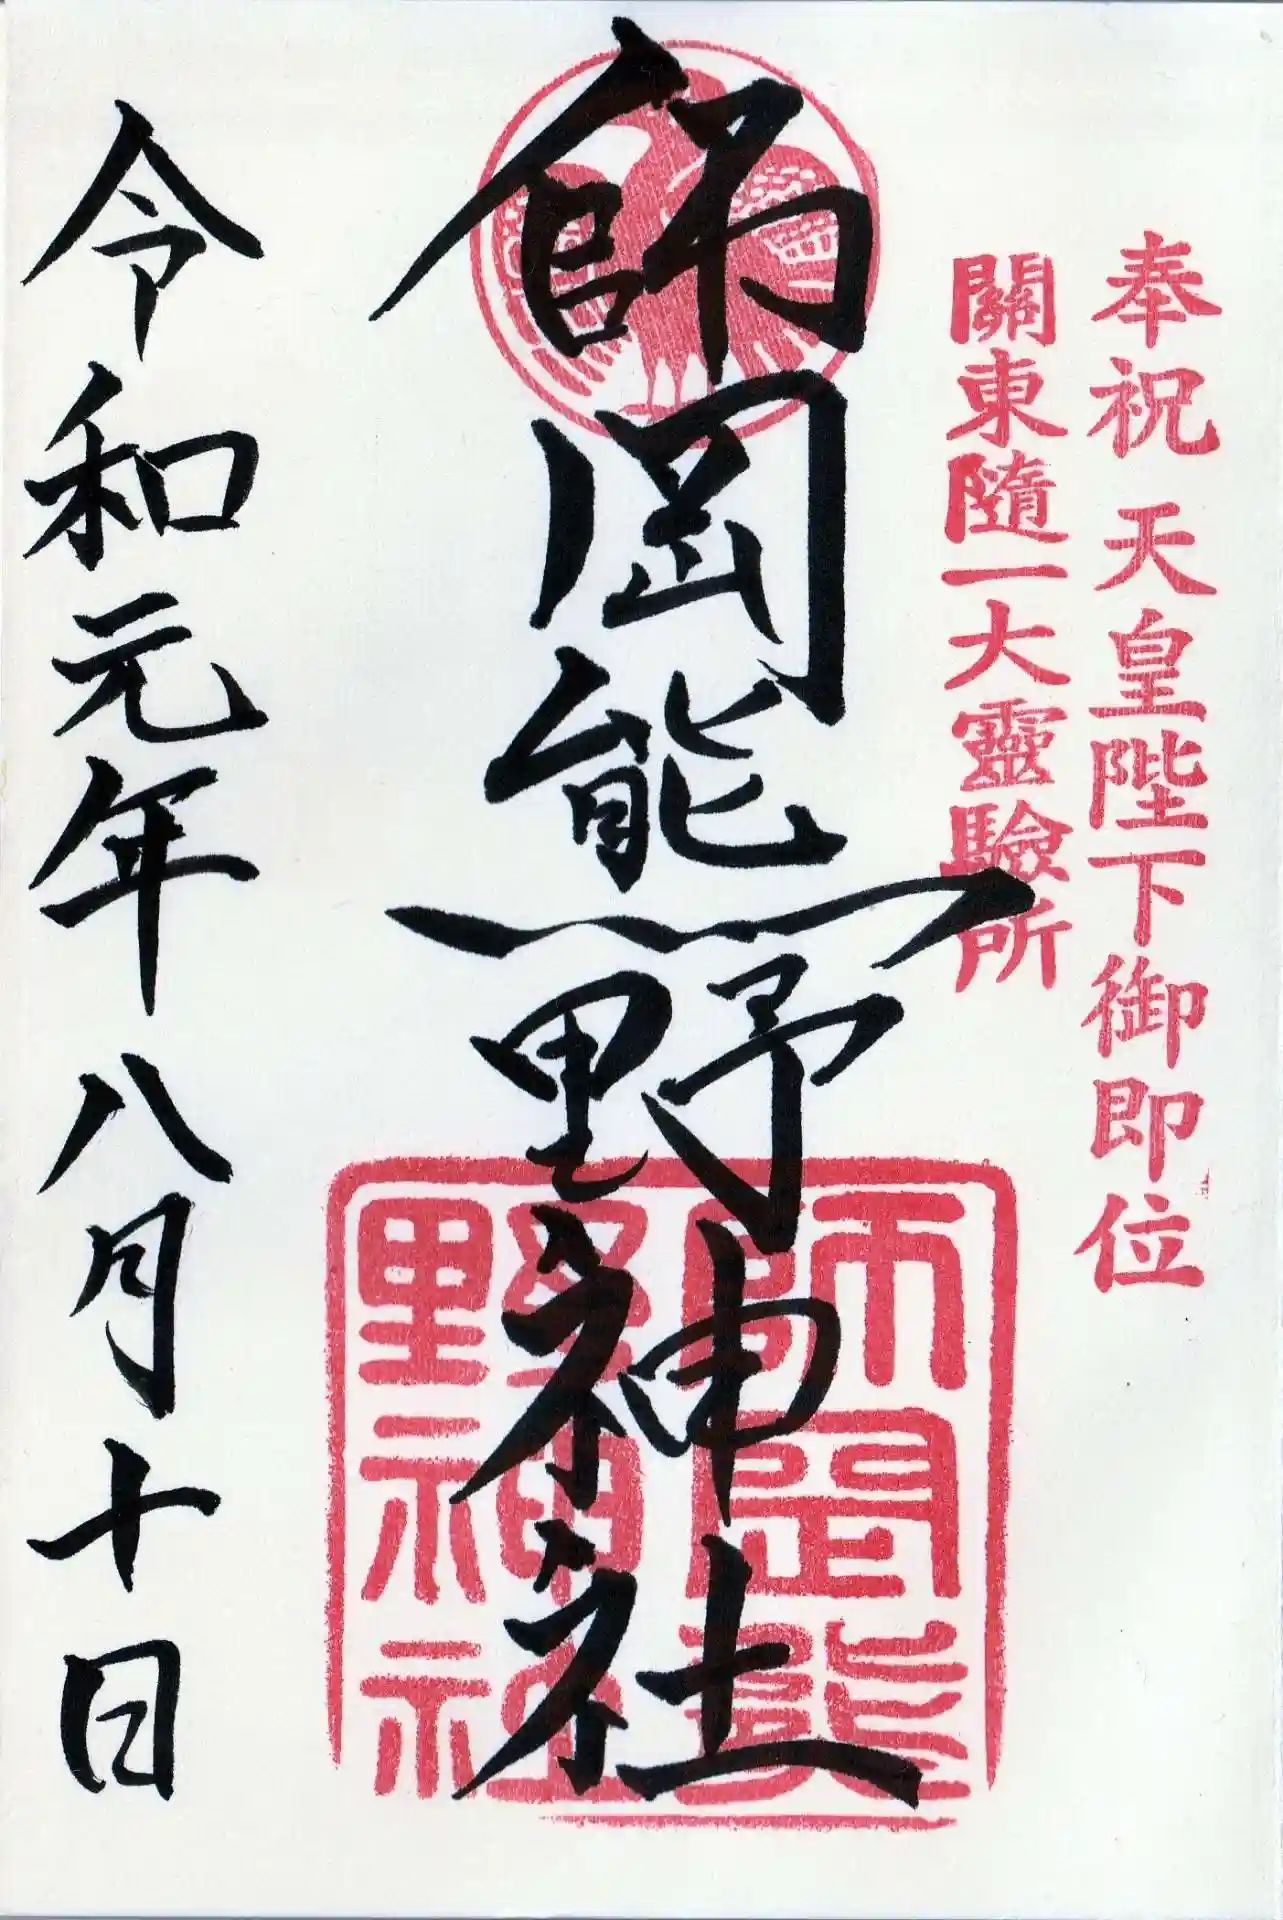 奉祝 天皇陛下御即位
關東隨一大靈驗所
師岡熊野神社
師岡熊
野神社
令和元年八月十日